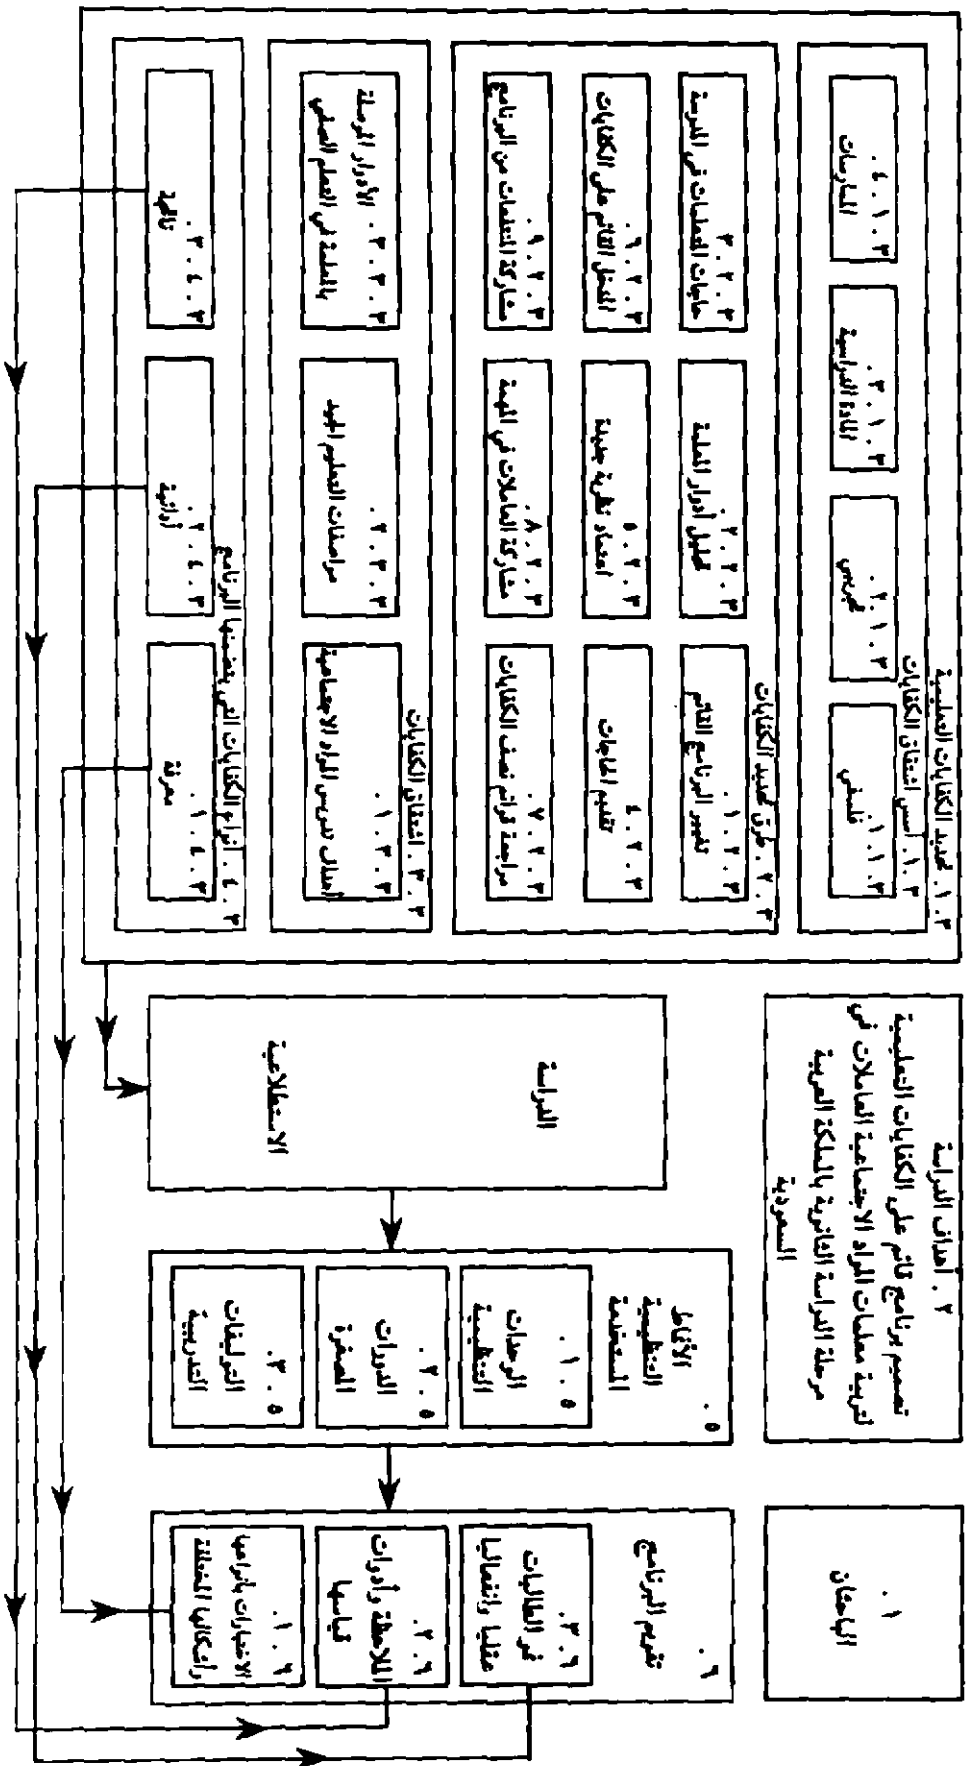 ١ .
الباحثان
٢ . أهداف الدراسة
تصميم برنامج قائم على الكفايات التعليمية
لتربية معلمات المواد الاجتماعية العاملات في
مرحلة الدراسة الثانوية بالمملكة العربية
السعودية
٣ . ١ . تحديد الكفايات التعليمية
٣ . ١ . أسس اشتقاق الكفايات
٣ . ١ . ١ .
فلسفي
٣ . ١ . ٢ .
تجريبي
٣ . ١ . ٣ .
المادة الدراسية
٣ . ١ . ٤ .
الممارسات
٣ . ٢ . طرق تحديد الكفايات
٣ . ٢ . ١ .
تغيير البرنامج القائم
٣ . ٢ . ٢ .
تحليل أدوار المعلمة
٣ . ٢ . ٣
حاجات المتعلمات في المدرسة
٣ . ٢ . ٤
تقييم الحاجات
٣ . ٢ . ٥
اعتماد نظرية جديدة
٣ . ٢ . ٦ .
المدخل القائم على الكفايات
٣ . ٢ . ٧ .
مراجعة قوائم تصف الكفايات
٣ . ٢ . ٨ .
مشاركة العاملات في المهنة
٣ . ٢ . ٩ .
مشاركة المتعلمات من البرنامج
٣ . ٣ . اشتقاق الكفايات
٣ . ٣ . ١ .
أهداف تدريس المواد الاجتماعية
٣ . ٣ . ٢ .
مواصفات التعليم الجيد
٣ . ٣ . ٣ . الأدوار الموصلة
بالمعلمة في التعلم الصفي
٣ . ٤ . أنواع الكفايات التي يتضمنها البرنامج
٣ . ٤ . ١ .
معرفة
٣ . ٤ . ٢ .
أدائية
٣ . ٤ . ٣ .
ناتجية
الدراسة
الاستطلاعية
٥ .
الأنماط
التنظيمية
المستخدمة
٥ . ١ .
الوحدات
التنظيمية
٥ . ٢ .
الدورات
المصغرة
٥ . ٣ .
التوليفات
التدريبية
٦ .
تقويم البرنامج
٦ . ٣ .
نمو الطالبات
عقليا وانفعاليا
٦ . ٢ .
الملاحظة وأدوات
قياسها
٦ . ١ .
الاختبارات بأنواعها
وأشكالها المختلفة